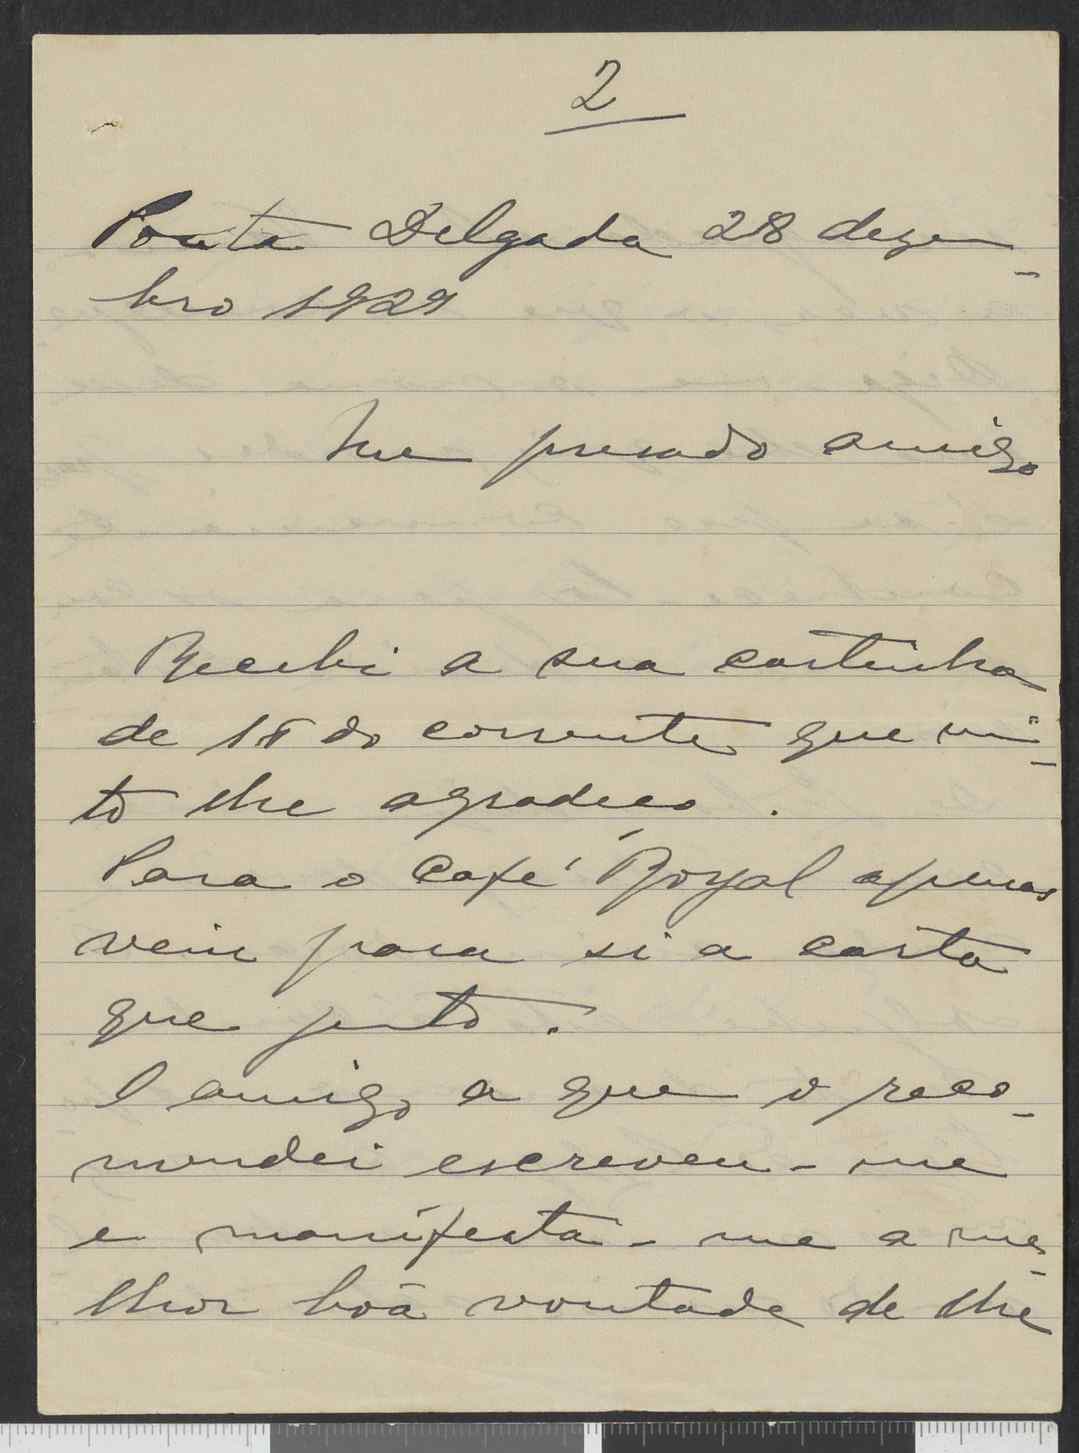 2
Ponta Delgada 28 dezem-
bro 1929
Meu presado amigo
Recebi a sua cartinha
de 18 do corrente que mui-
to lhe agradeço.
Para o Café Royal apenas
veiu para si a carta
que junto.
O amigo a que o reco-
mendei escreveu-me
e manifesta-me a me-
lhor bôa vontade de lhe